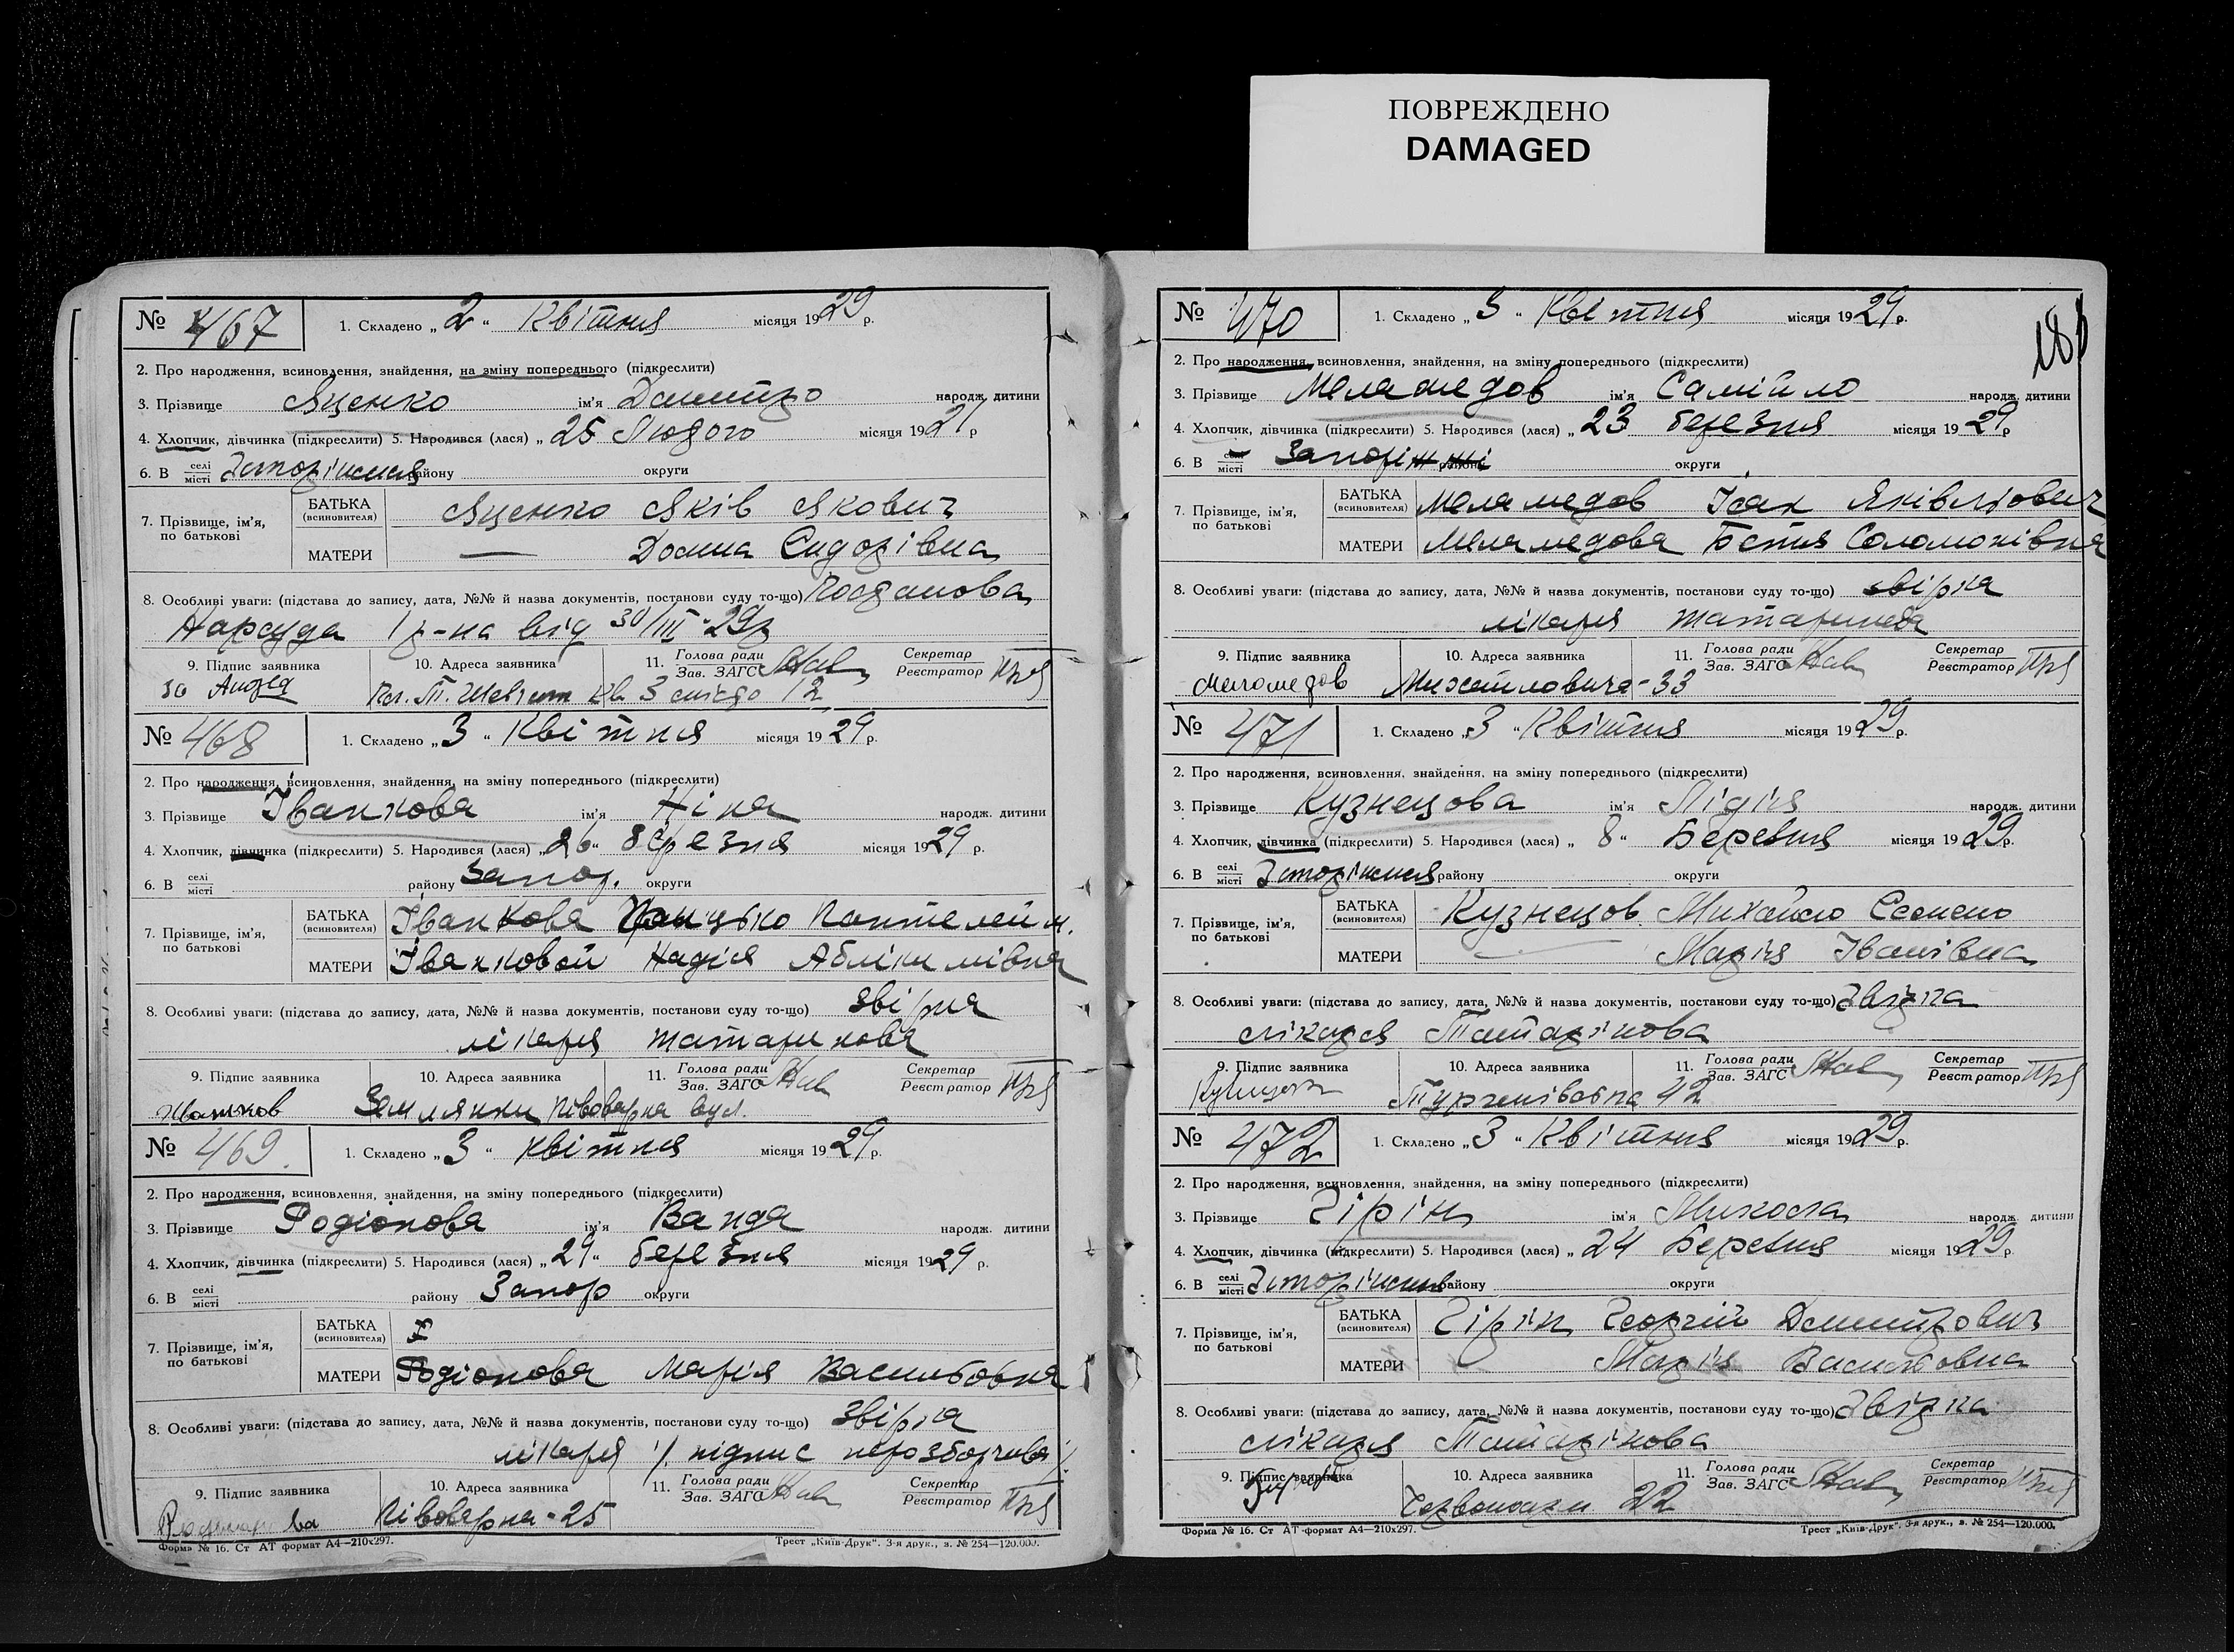 ПОВРЕЖДЕНО
DAMAGED
№ 467 1. Складено „ 2 “ Квітня місяця 1929 р.
2. Про народження, всиновлення, знайдення, на зміну попереднього (підкреслити)
3. Прізвище Яценко ім'я Дмитро народж. дитини
4. Хлопчик, дівчинка (підкреслити) 5. Народився (лася) „ 25 Лютого місяця 1921 р
6. В селі місті Запоріжжя району округи
7. Прізвище, ім'я, по батькові
БАТЬКА (всиновителя) Яценко Яків Якович
МАТЕРИ — Домна Сидорівна
8. Особливі уваги: (підстава до запису, дата, №№ й назва документів, постанови суду то-що) Постанова
Нарсуда 1 р-на від 30/III-29р
9. Підпис заявника 10. Адреса заявника 11. Голова ради Зав. ЗАГС Секретар Реєстратор
Кв. 3 12
№ 468 1. Складено „ 3 “ Квітня місяця 1929 р.
2. Про народження, всиновлення, знайдення, на зміну попереднього (підкреслити)
3. Прізвище Іванкова ім'я Ніна народж. дитини
4. Хлопчик, дівчинка (підкреслити) 5. Народився (лася) „ 26 “ березня місяця 1929 р.
6. В селі місті району Запор. округи
7. Прізвище, ім'я, по батькові
БАТЬКА (всиновителя) Іванкова Пантелейм.
МАТЕРИ Іванковой Надія
8. Особливі уваги: (підстава до запису, дата, №№ й назва документів, постанови суду то-що) звірка
лікаря татаринова
9. Підпис заявника 10. Адреса заявника 11. Голова ради Зав. ЗАГС Секретар Реєстратор
Землянки Півоварна вул.
№ 469. 1. Складено „ 3 “ квітня місяця 1929 р.
2. Про народження, всиновлення, знайдення, на зміну попереднього (підкреслити)
3. Прізвище Родіонова ім'я Ванда народж. дитини
4. Хлопчик, дівчинка (підкреслити) 5. Народився (лася) „ 29 “ березня місяця 1929 р.
6. В селі місті району Запор округи
7. Прізвище, ім'я, по батькові
БАТЬКА (всиновителя)
МАТЕРИ Родіонова Марія Васильовна
8. Особливі уваги: (підстава до запису, дата, №№ й назва документів, постанови суду то-що) звірка
лікаря /підпис нерозборчива/.
9. Підпис заявника 10. Адреса заявника 11. Голова ради Зав. ЗАГС Секретар Реєстратор
Півоварна - 25
Форма № 16. Ст АТ формат А4—210х297. Трест „Київ-Друк“. 3-я друк., з. № 254—120.000.
№ 470 1. Складено „ 3 “ Квітня місяця 1929 р.
2. Про народження, всиновлення, знайдення, на зміну попереднього (підкреслити)
3. Прізвище Меламедов ім'я Самійло народж. дитини
4. Хлопчик, дівчинка (підкреслити) 5. Народився (лася) „ 23 березня місяця 1929 р
6. В селі місті Запоріжжі району округи
7. Прізвище, ім'я, по батькові
БАТЬКА (всиновителя) Меламедов Ісак Яківльович
МАТЕРИ Меламедова Бетя Соломонівна
8. Особливі уваги: (підстава до запису, дата, №№ й назва документів, постанови суду то-що) звірка
лікаря татаринова
9. Підпис заявника 10. Адреса заявника 11. Голова ради Зав. ЗАГС Секретар Реєстратор
Меламедов Михайловича - 33
№ 471 1. Складено „ 3 “ Квітня місяця 1929 р.
2. Про народження, всиновлення, знайдення, на зміну попереднього (підкреслити)
3. Прізвище Кузнецова ім'я Лідія народж. дитини
4. Хлопчик, дівчинка (підкреслити) 5. Народився (лася) „ 8 “ Березня місяця 1929 р.
6. В селі місті Запоріжжя району округи
7. Прізвище, ім'я, по батькові
БАТЬКА (всиновителя) Кузнецов Михайло Семено
МАТЕРИ — Марія Іванівна
8. Особливі уваги: (підстава до запису, дата, №№ й назва документів, постанови суду то-що) Звірка
лікаря Татарінова
9. Підпис заявника 10. Адреса заявника 11. Голова ради Зав. ЗАГС Секретар Реєстратор
42
№ 472 1. Складено „ 3 “ Квітня місяця 1929 р.
2. Про народження, всиновлення, знайдення, на зміну попереднього (підкреслити)
3. Прізвище Гірін ім'я Микола народж. дитини
4. Хлопчик, дівчинка (підкреслити) 5. Народився (лася) „ 24 Березня місяця 1929 р
6. В селі місті Запоріжжя району округи
7. Прізвище, ім'я, по батькові
БАТЬКА (всиновителя) Гірін Георгій Дмитрович
МАТЕРИ Марія Васильовна
8. Особливі уваги: (підстава до запису, дата, №№ й назва документів, постанови суду то-що) Звірка
лікаря Татарінова
9. Підпис заявника 10. Адреса заявника 11. Голова ради Зав. ЗАГС Секретар Реєстратор
22
Форма № 16. Ст АТ формат А4—210х297. Трест „Київ-Друк“. 3-я друк., з. № 254—120.000.